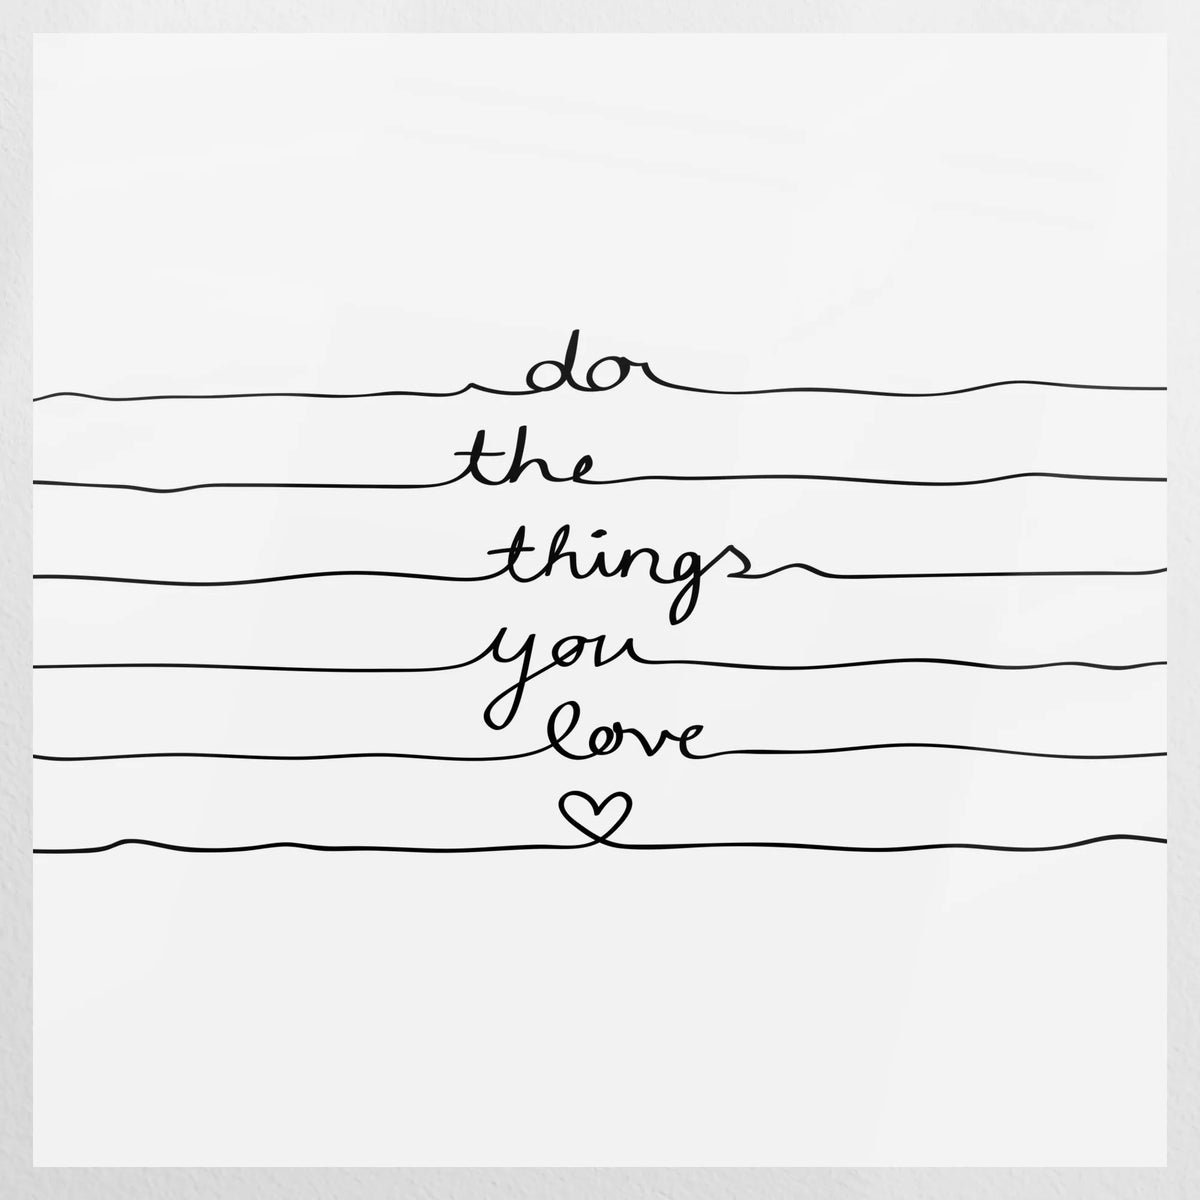 do
the
things
you
love